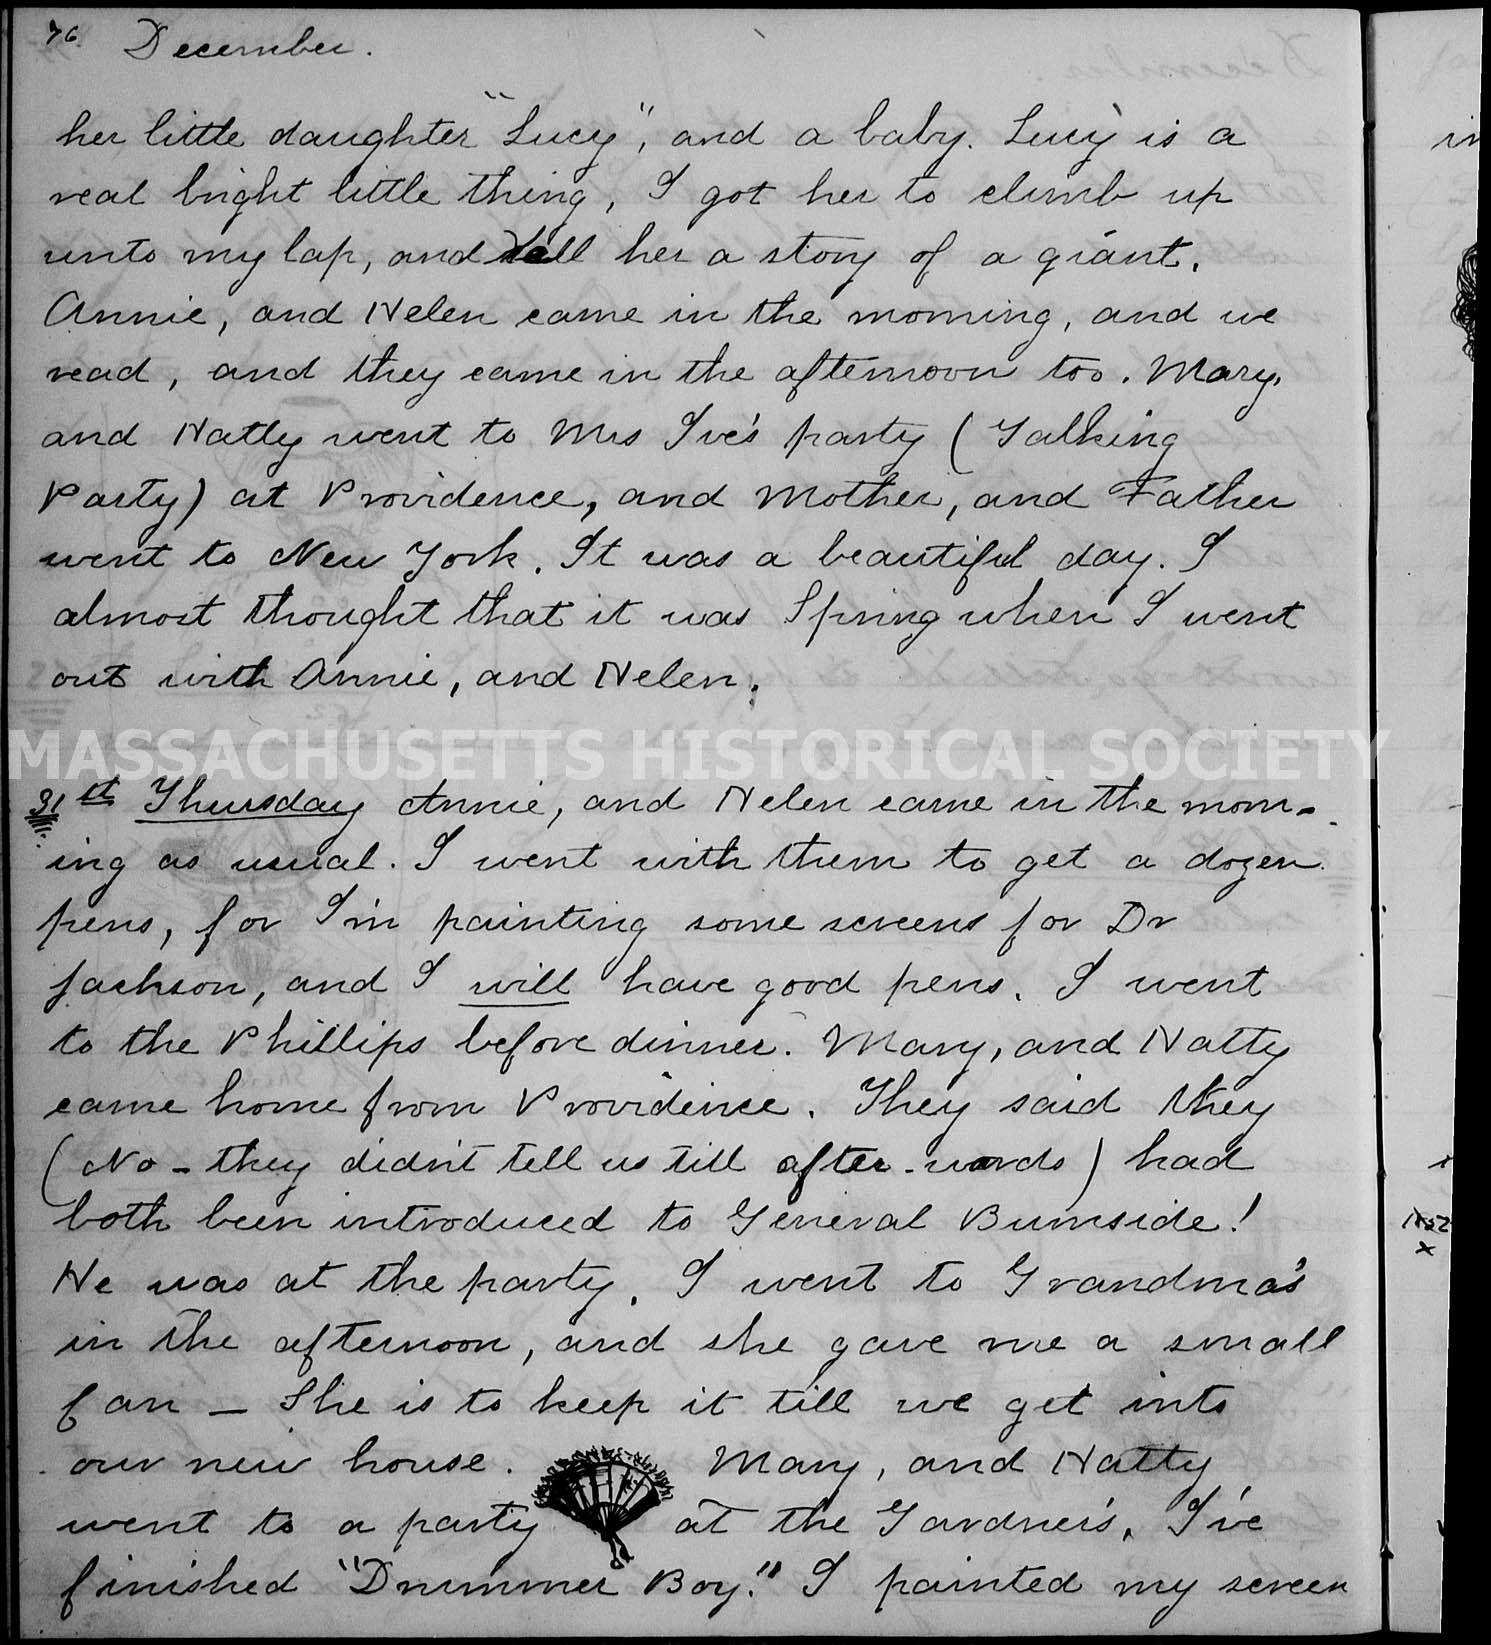 76 December.
her little daughter "Lucy", and a baby. Lucy is a
real bright little thing, I got her to climb up
unto my lap, and tell her a story of a giant.
Annie, and Helen came in the morning, and we
read, and they came in the afternoon too. Mary,
and Hatty went to Mrs Ive's party (Talking
Party) at Providence, and Mother, and Father
went to New York. It was a beautiful day. I
almost thought that it was Spring when I went
out with Annie, and Helen.
MASSACHUSETTS HISTORICAL SOCIETY
31th Thursday Annie, and Helen came in the morn-
ing as usual. I went with them to get a dozen
pens, for I'm painting some screens for Dr
Jackson, and I will have good pens. I went
to the Phillips before dinner. Mary, and Hatty
came home from Providence. They said they
(No - they didn't tell us till after-wards) had
both been introduced to General Burnside!
He was at the party. I went to Grandma's
in the afternoon, and she gave me a small
fan - She is to keep it till we get into
our new house. Mary, and Hatty
went to a party at the Gardner's. I've
finished "Drummer Boy." I painted my screen